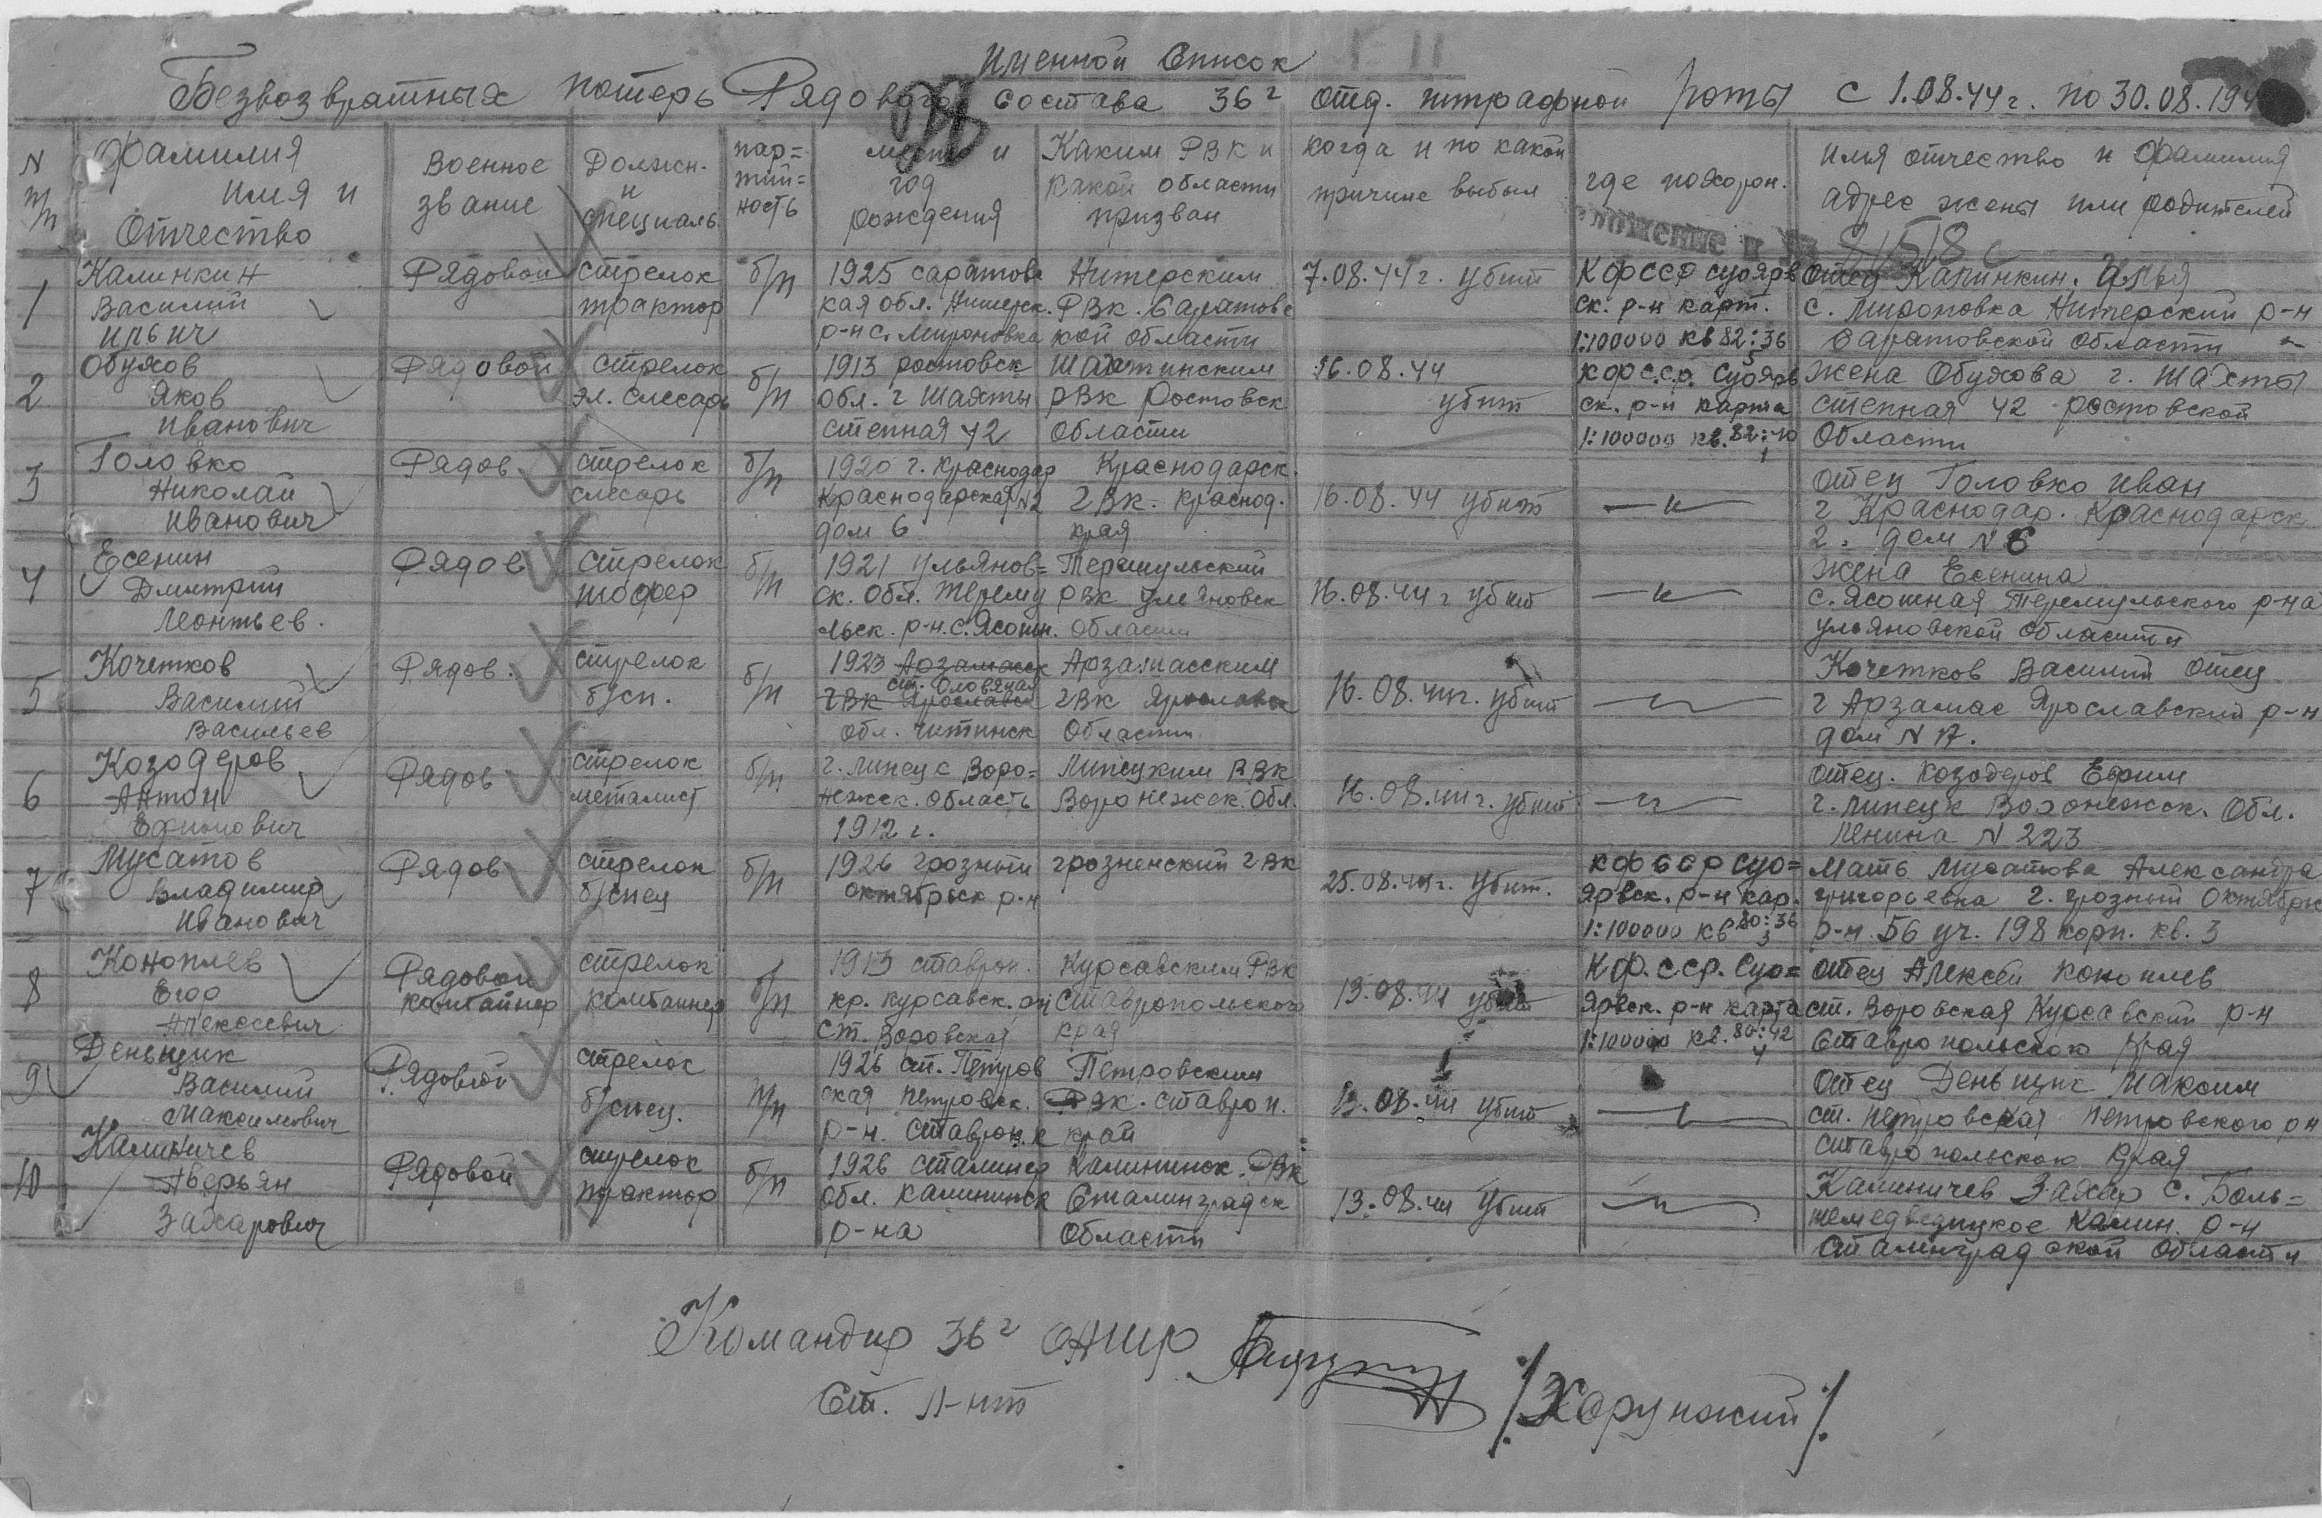 Именной Список
Безвозвратных потерь Рядового состава 36й отд. штрафной роты с 1.08.44г. по 30.08.194
N п/п
Фамилия имя и Отчество
Военное звание
Должн. и специаль
пар=тий=ность
и год рождения
Каким РВК и какой области призван
когда и по какой причине выбыл
где похорон.
имя отчество и фамилия адрес жены или родителей
1
Калинкин
Василий
Ильич
Рядовой
стрелок
трактор
б/п
1925 саратовс
кая обл.
р-н с. Мироновка
РВК. Саратовс
кой области
7.08.44г. убит
КФССР суоярв
ск. р-н карт.
1:100000 кв 82:36
отец Калинкин. Илья
с. Мироновка р-н
Саратовской области
2
Обухов
Яков
Иванович
Рядовой
стрелок
эл. слесарь
б/п
1913 ростовск
обл. г Шахты
степная 42
Шахтинским
РВК Ростовск
Области
16.08.44
убит
КФССР. Суоярв
ск. р-н карта
1:100000 кв. 82:40
1
жена Обухова г. Шахты
степная 42 ростовской
Области
3
Головко
Николай
Иванович
Рядов
стрелок
слесарь
б/п
1920 г. Краснодар
Краснодарская N2
дом 6
Краснодарск.
ГВК. Краснод.
края
16.08.44 убит
—"—
отец Головко Иван
г Краснодар. Краснодарск
2. дом N 6
4
Есенин
Дмитрий
Леонтьев.
Рядов
стрелок
шофер
б/п
1921 Ульянов=
ск. обл.
льск. р-н. с. Ясашн.
РВК Ульяновск
Области
16.08.44 г убит
—"—
жена Есенина
с. Ясашная р-на
ульяновской области
5
Кочетков
Василий
Васильев
Рядов.
стрелок
б/сп.
б/п
1923 Арзамасск
ст. Оловяная
ГВК Ярославск
обл. Читинск
Арзамасским
ГВК Ярославск
Области
16.08.44г. убит
—"—
Кочетков Василий отец
г Арзамас Ярославский р-н
дом N 17.
6
Козодеров
Антон
Ефимович
Рядов
стрелок
металист
б/п
г. Липецк Воро=
нежск. область
1912 г.
Липецким РВК
Воронежск. Обл.
16.08.44г. убит
—"—
отец. Козодеров Ефим
г. Липецк Воронежск. Обл.
Ленина N 223
7
Мусатов
Владимир
Иванович
Рядов
стрелок
б/спец
б/п
1926 грозный
октябрьск р-н
грозненский ГВК
25.08.44г. убит.
КФССР Суо=
ярвск. р-н кар.
1:100000 кв 80:36
3
Мать Мусатова Александра
григорьевна г. грозный Октябрьс
р-н 56 уч. 198 корп. кв. 3
8
Коноплев
Егор
Алексеевич
Рядовой
комбайнер
стрелок
комбайнер
б/п
1913 ставроп.
кр. курсавск. рн
ст. Воровская
Курсавским РВК
Ставропольского
края
13.08.44 убит
КФ. ССР. Суо=
ярвск. р-н карта
1:100000 кв. 80:42
4
отец Алексей Коноплев
ст. Воровская Курсавский р-н
Ставропольского края
9
Деньщик
Василий
Максимович
Рядовой
стрелок
б/спец.
б/п
1926 ст. Петров
ская петровск.
р-н. ставроп. к
Петровским
РВК. Ставроп.
край
13.08.44 убит
—"—
отец Деньщик Максим
ст. Петровская Петровского рн
ставропольского края
10
Калиничев
Аверьян
Захарович
Рядовой
стрелок
трактор
б/п
1926 сталингр
обл. калининск
р-на
Калининск. РВК
Сталинградск
Области
13.08.44 убит
—"—
Калиничев Захар с. Боль=
шемедведицкое калин. р-н
Сталинградской области
Командир 36й ОАШР
Ст. Л-нт
/Харунжий/